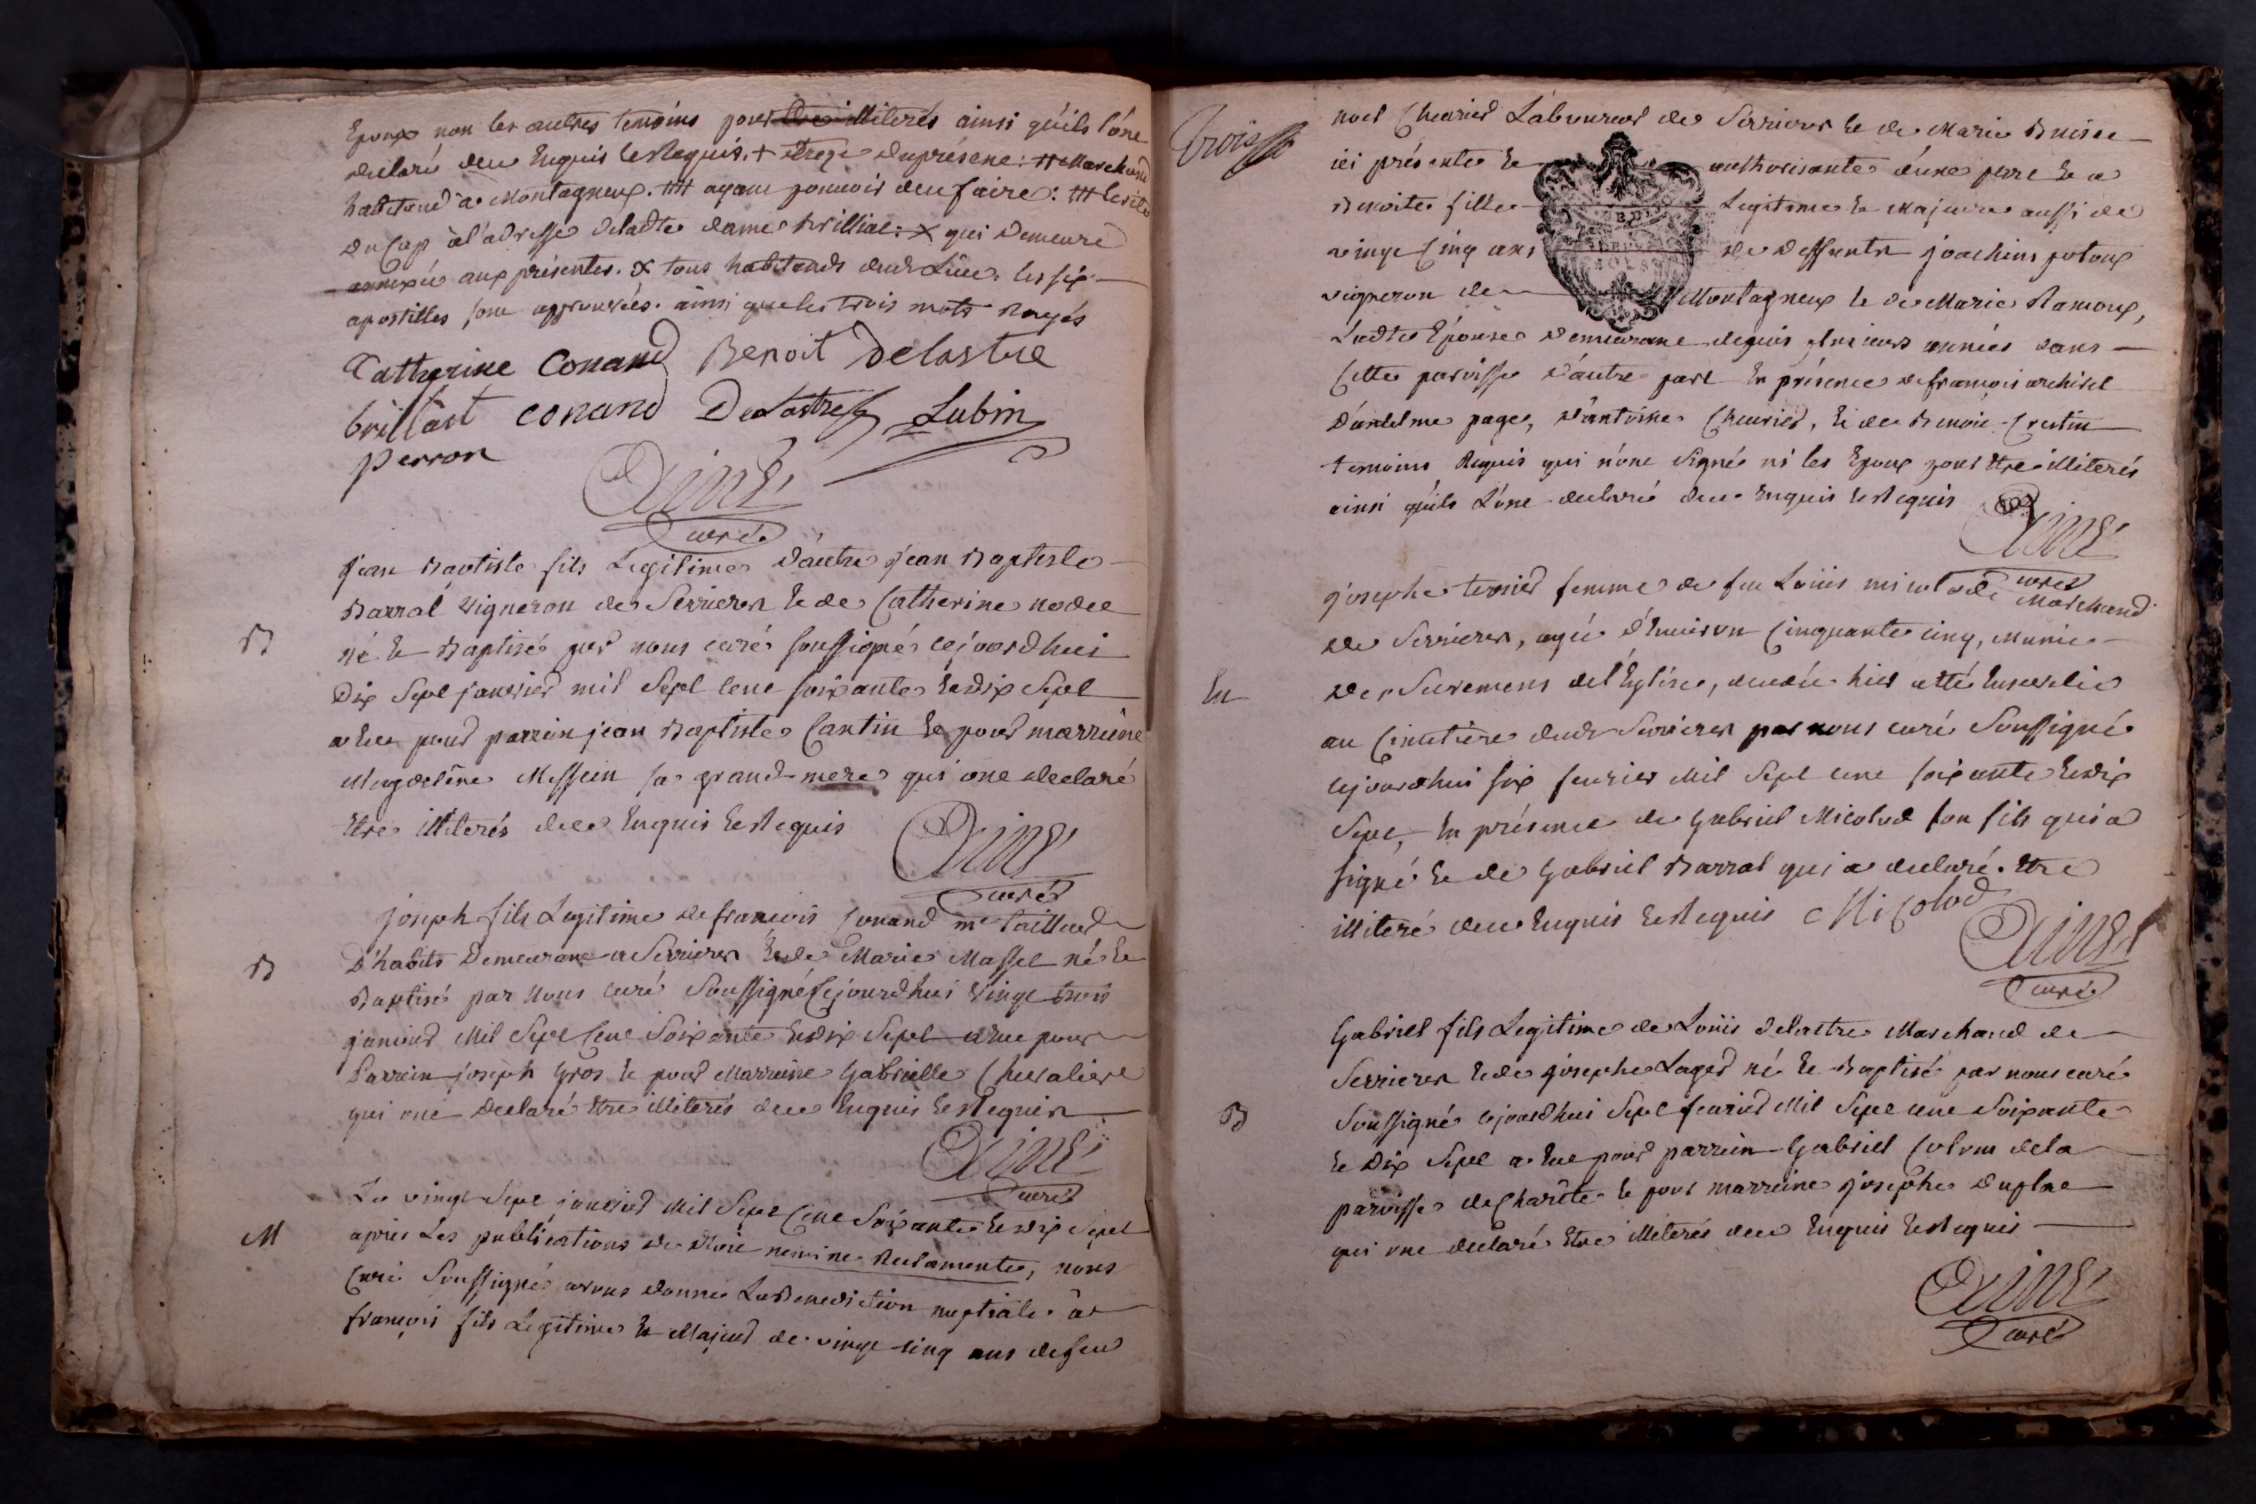 Epoux non les autres temoins pour être illiterés ainsi qu'ils l'one
declaré deu Enquis et Requis. + siege du présene: # Marchand
habitand à Montagneux. ## ayane pouvoir deu faire:
du Cap à l'adresse de ladte dame brilliat: x qui demeure
annexée aux présentes. x tous habitands dud Lieu. les six
apostilles sone approuvées. ainsi que les trois mots Rayés
Catherine Conand Benoit Delastre
brilliat conand Delastre Lubin
perron
curé
jean Baptiste fils Legitime d'autre jean Baptiste
Barral vigneron de Serrieres et de Catherine
B
né et Baptisé par nous curé soussigné cejourdhui
Dix Sept janvier mil Sept cene soixante et dix Sept
a Eue pour parrain jean Baptiste Cantin et pour marreine
Magdeleine sa grand-mere qui one declaré
Etre illiterés deee Enquis et Requis
curé
joseph fils Legitime de francois Conand me tailleur
B
D'habits Demeurane a Serrieres et de Marie Massel né et
Baptisé par Nous curé Soussigné Cejourdhui vinge trois
janvier Mil Sept Cene Soixante et dix Sept a Eue pour
Parrein joseph Gros et pour Marreine Gabrielle Chevaliere
qui one declaré Etre illiterés deee Enquis et Requis
curé
Le vinge Sept janvier Mil Sept Cene Soixante et dix Sept
M
apries Les publications de droie nemine Reclamente, nous
Curé Soussigné avons donné La Benediction nuptiale à
françois fils Legitime et Majeur de vinge cinq ans de feu
trois
noel Cheurier Laboureur de Serrieres et de Marie
ici présente et authorisante d'une pare et a
Benoite fille Legitime et Majeure aussi de
vinge Cinq ans de deffunts joachim
vigneron de Montagneux et de Marie Ramoux,
Ladte Epouse demeurane depuis plusieurs années dans
Cette paroisse d'autre part En présence de françois archirel
D'antelme page, d'antoine Cheurier, et de Benoie Crutin
temoins Requis qui n'one Signé ni les Epoux pour Etre illiterés
ainsi qu'ils L'one declaré deee Enquis et Requis
curé
josephe femme de feu Loüis Micolod Marchand
de Serrieres, agée d'Environ Cinquante cinq, Munie
En
des Sacremens de l'Eglise, decedée hier a été Ensevelie
au Cimetiere dud Serrieres par nous curé Soussigné
cejourdhui six fevrier Mil Sept cene soixante et dix
Sept, En présence de Gabriel Micolod son fils qui a
signé et de Gabriel Barral qui a declaré Etre
illiteré deee Enquis et Requis Micolod
curé
Gabriel fils Legitime de Loüis delastre Marchand de
Serrieres et de josephe Lager né et Baptisé par nous curé
B
Soussigné cejourdhui Sept fevrier Mil Sept cene Soixante
et Dix Sept a Eue pour parrein Gabriel de la
paroisse de Charète et pour marreine josephe
qui one declaré Etre illiterés deee Enquis et Requis
curé